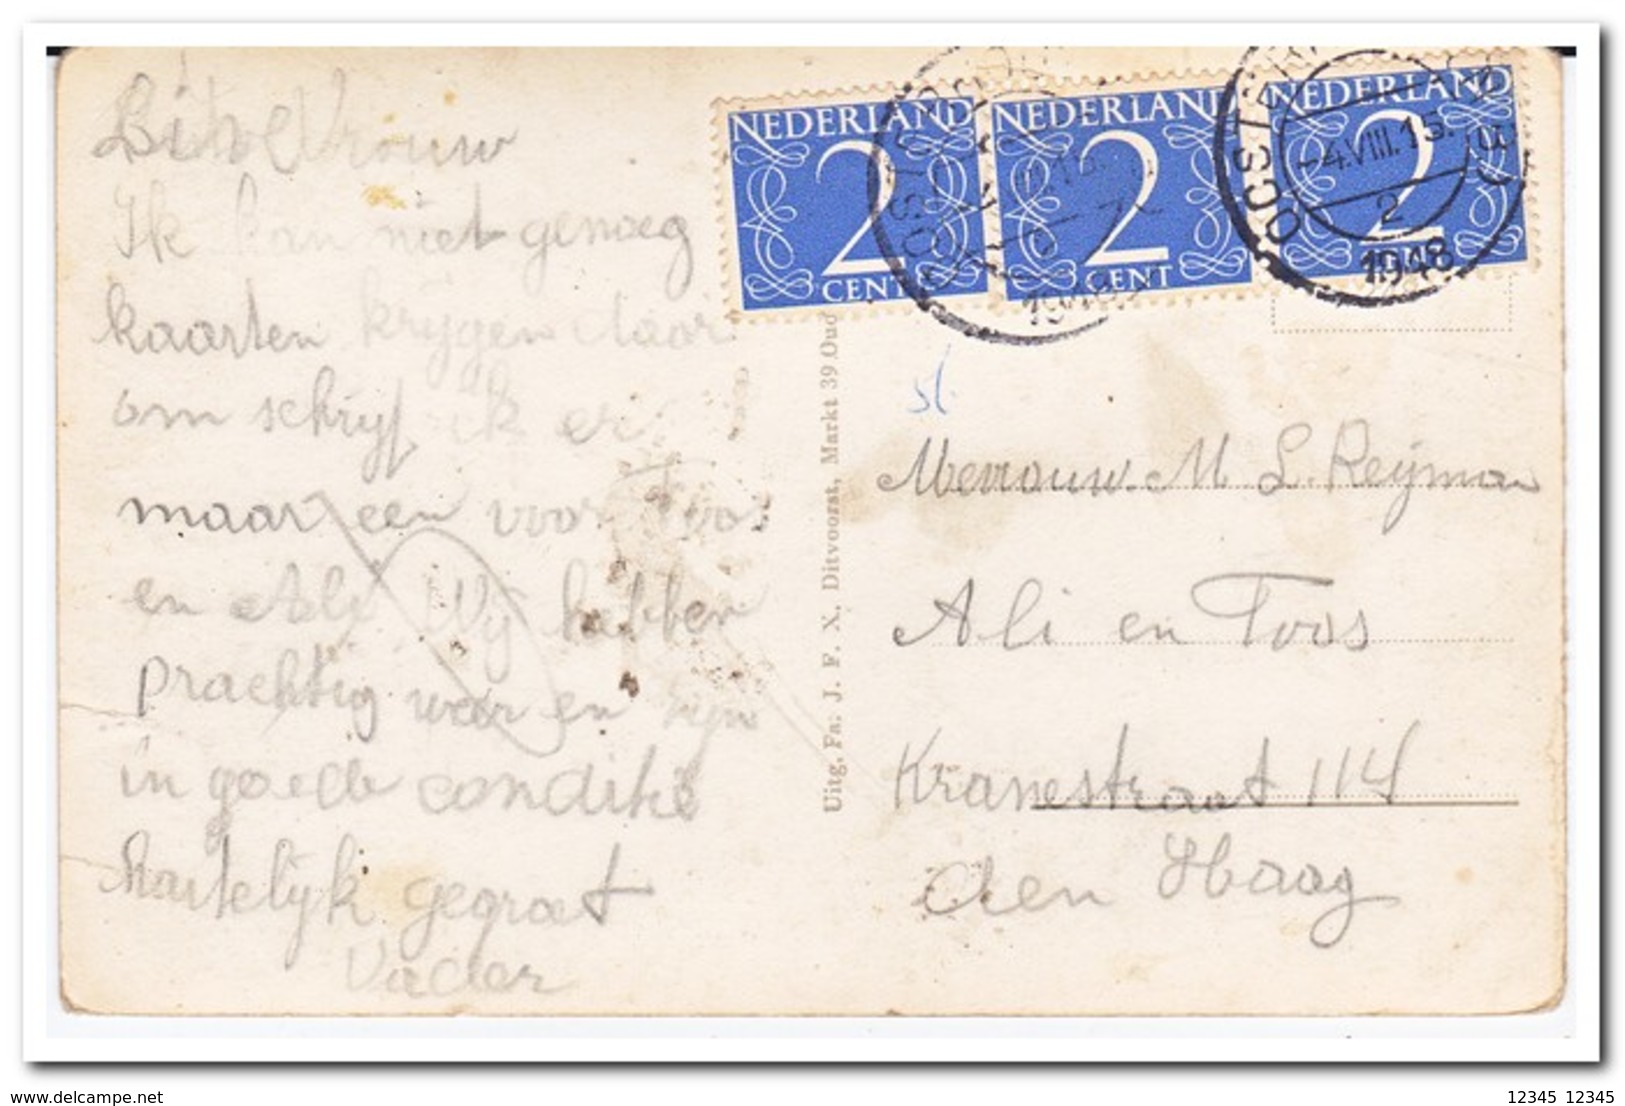 Vrouw
Ik kan niet genoeg
kaarten krijgen daar
om schrijf ik er
maar een voor Toos
en Ali Wij hebben
prachtig weer en zijn
in goede conditie
hartelijk gegroet
Vader
Uitg. Fa. J. F. X. Ditvoorst, Markt 39 Oud
NEDERLAND
2
CENT
NEDERLAND
2
CENT
NEDERLAND
2
OOSTERHOUT
-4.VIII.15.
2
1948
Mevrouw. M L. Reijman
Ali en Toos
Kranestraat 114
den Haag
delcampe.net
12345 12345